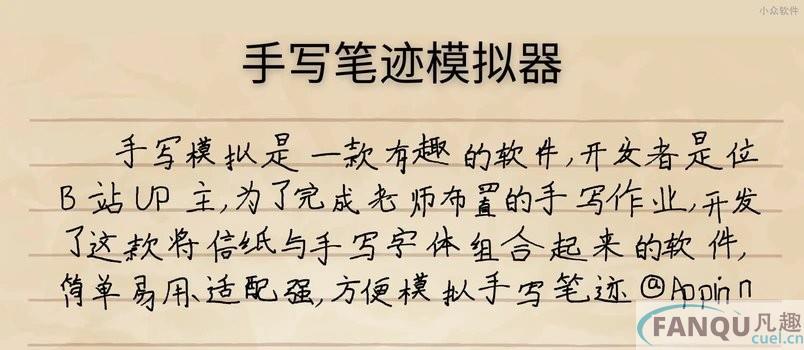 小众软件
手写笔迹模拟器
手写模拟是一款有趣的软件,开发者是位
B站UP主,为了完成老师布置的手写作业,开发
了这款将信纸与手写字体组合起来的软件,
简单易用、适配强,方便模拟手写笔迹@Appinn
FANQU凡趣
cuel.cn